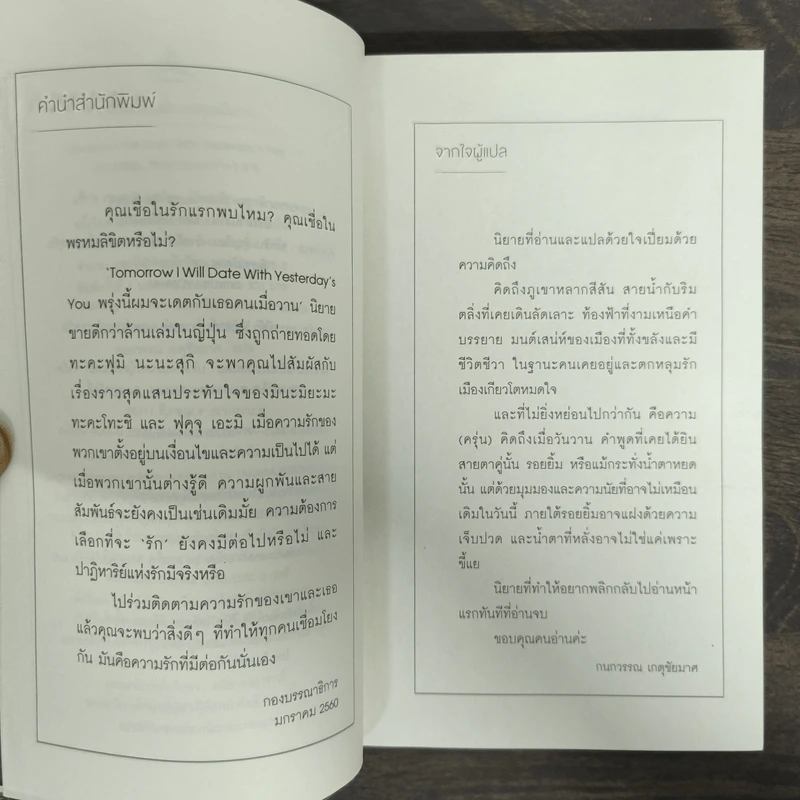 คำนำสำนักพิมพ์
คุณเชื่อในรักแรกพบไหม? คุณเชื่อใน
พรหมลิขิตหรือไม่?
'Tomorrow I Will Date With Yesterday's
You พรุ่งนี้ผมจะเดตกับเธอคนเมื่อวาน' นิยาย
ขายดีกว่าล้านเล่มในญี่ปุ่น ซึ่งถูกถ่ายทอดโดย
ทะคะฟุมิ นะนะสุกิ จะพาคุณไปสัมผัสกับ
เรื่องราวสุดแสนประทับใจของมินะมิยะมะ
ทะคะโทะชิ และ ฟุคุจุ เอะมิ เมื่อความรักของ
พวกเขาตั้งอยู่บนเงื่อนไขและความเป็นไปได้ แต่
เมื่อพวกเขานั้นต่างรู้ดี ความผูกพันและสาย
สัมพันธ์จะยังคงเป็นเช่นเดิมมั้ย ความต้องการ
เลือกที่จะ 'รัก' ยังคงมีต่อไปหรือไม่ และ
ปาฏิหาริย์แห่งรักมีจริงหรือ
ไปร่วมติดตามความรักของเขาและเธอ
แล้วคุณจะพบว่าสิ่งดีๆ ที่ทำให้ทุกคนเชื่อมโยง
กัน มันคือความรักที่มีต่อกันนั่นเอง
กองบรรณาธิการ
มกราคม 2560
จากใจผู้แปล
นิยายที่อ่านและแปลด้วยใจเปี่ยมด้วย
ความคิดถึง
คิดถึงภูเขาหลากสีสัน สายน้ำกับริม
ตลิ่งที่เคยเดินลัดเลาะ ท้องฟ้าที่งามเหนือคำ
บรรยาย มนต์เสน่ห์ของเมืองที่ทั้งขลังและมี
ชีวิตชีวา ในฐานะคนเคยอยู่และตกหลุมรัก
เมืองเกียวโตหมดใจ
และที่ไม่ยิ่งหย่อนไปกว่ากัน คือความ
(ครุ่น) คิดถึงเมื่อวันวาน คำพูดที่เคยได้ยิน
สายตาคู่นั้น รอยยิ้ม หรือแม้กระทั่งน้ำตาหยด
นั้น แต่ด้วยมุมมองและความนัยที่อาจไม่เหมือน
เดิมในวันนี้ ภายใต้รอยยิ้มอาจแฝงด้วยความ
เจ็บปวด และน้ำตาที่หลั่งอาจไม่ใช่แค่เพราะ
ขี้แย
นิยายที่ทำให้อยากพลิกกลับไปอ่านหน้า
แรกทันทีที่อ่านจบ
ขอบคุณคนอ่านค่ะ
กนกวรรณ เกตุชัยมาศ